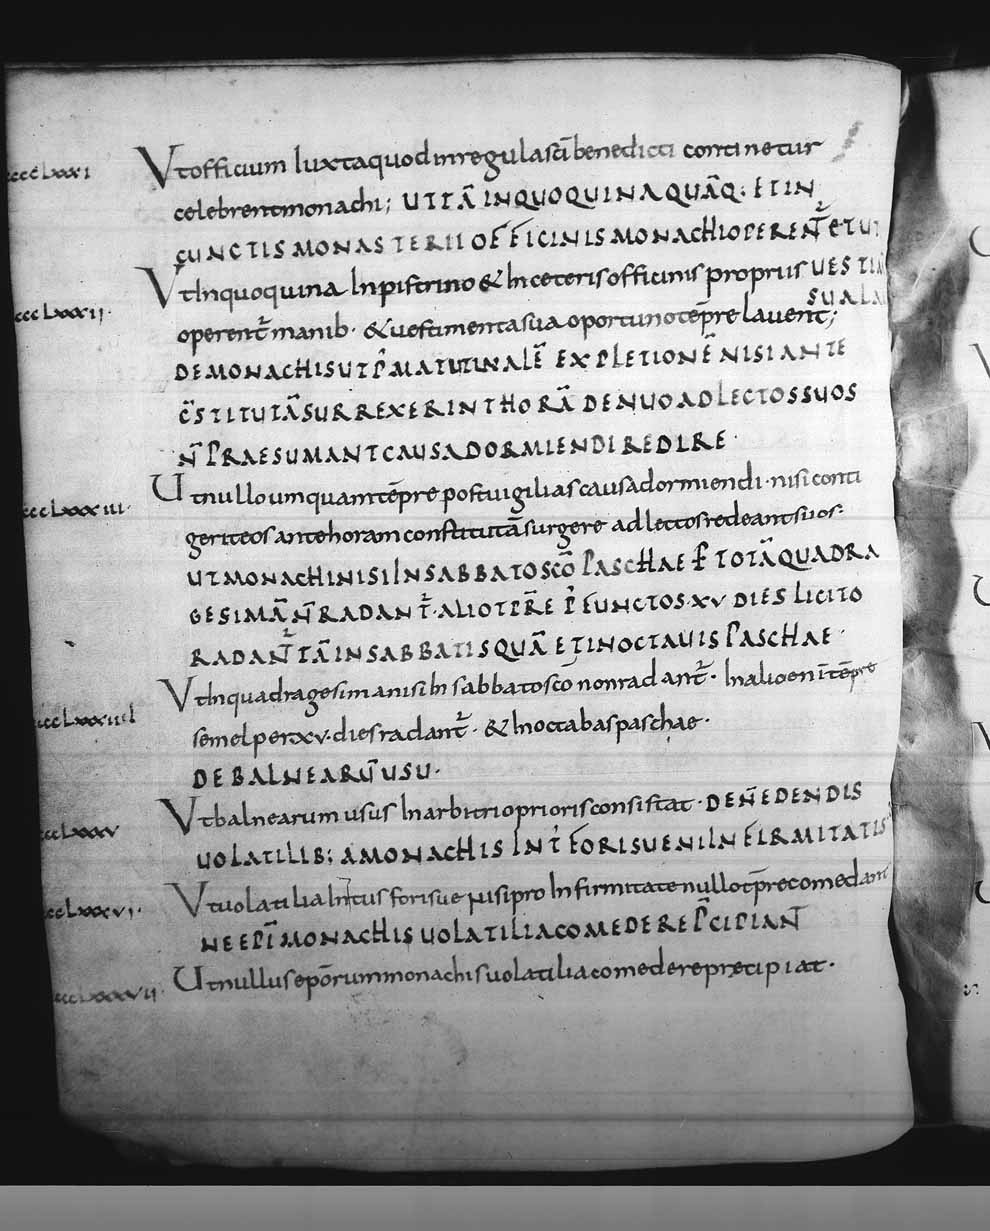 cccLxxxI Vt officium Iuxta quod In regula sc̄i benedicti continetur
celebrent monachi; UT TĀ IN QUOQUINA QUĀQ: ET IN
CUNCTIS MONASTERII OFFICINIS MONACHI OPERENT̄ ET UT
Vt In quoquina In pistrino & In ceteris officinis propriis UESTIM
SUA LA
cccLxxxII· operent̄ manib· & uestimenta sua oportuno tēpre lauent;
DE MONACHIS UT P̄ MATUTINALĒ EXPLETIONĒ NISI ANTE
C̄STITUTĀ SURREXERINT HORĀ DENUO AD LECTOS SUOS
N̄ PRAESUMANT CAUSA DORMIENDI REDIRE·
cccLxxxIII· Ut nullo umquam tēpre post uigilias causa dormiendi· nisi conti
gerit eos ante horam constitutā surgere ad lectos redeant suos·
UT MONACHI NISI IN SABBATO SCŌ PASCHAE P̄ TOTĀ QUADRA
GESIMĀ N̄ RADANT̄· ALIO TP̄RE P̄ FUNCTOS·XV DIES LICITO
RADANT̄ TĀ IN SABBATIS QUĀ ET IN OCTAUIS PASCHAE·
cccLxxxIIII Vt In quadragesima nisi In sabbato scō non radant̄· In alio en̄ī tēpre
semel per xv· dies radant̄· & In octabas paschae·
DE BALNEARŪ USU·
cccLxxxV Vt balnearum usus In arbitrio prioris consistat· DE N̄ EDENDIS
UOLATILIB; A MONACHIS INT̄ FORISUE NI IN FIRMITATIS
cccLxxxVI· Vt uolatilia Intus forisue nisi pro Infirmitate nullo tp̄re comedant
NE EPĪ MONACHIS UOLATILIA COMEDERE P̄CIPIANT
cccLxxxVII Ut nullus epōrum monachis uolatilia comedere precipiat·